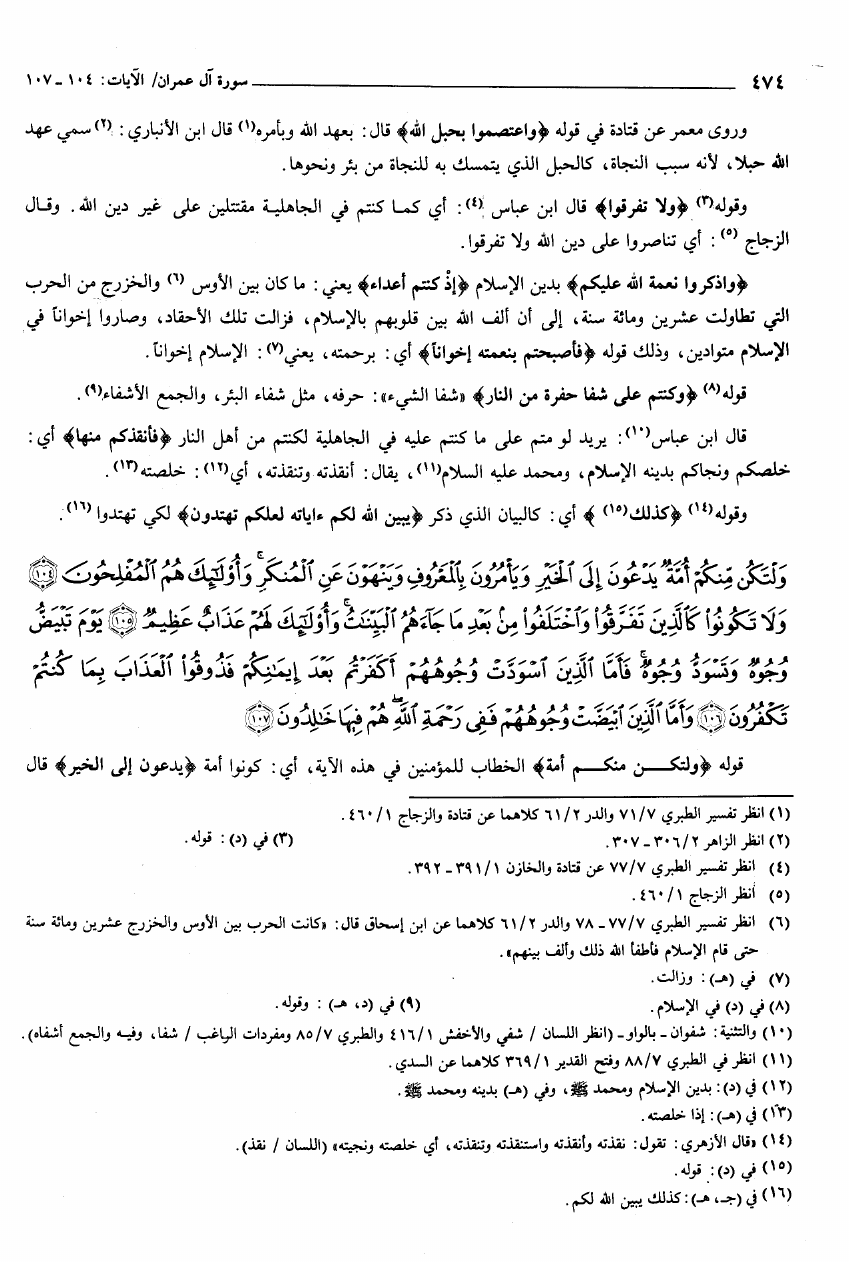 ٤٧٤ سورة آل عمران/ الآيات: ١٠٤ ـ ١٠٧
وروى معمر عن قتادة في قوله ﴿واعتصموا بحبل الله﴾ قال: بعهد الله وبأمره(١) قال ابن الأنباري: (٢) سمي عهد
الله حبلا، لأنه سبب النجاة، كالحبل الذي يتمسك به للنجاة من بئر ونحوها.
وقوله(٣) ﴿ولا تفرقوا﴾ قال ابن عباس (٤): أي كما كنتم في الجاهلية مقتتلين على غير دين الله. وقال
الزجاج (٥) : أي تناصروا على دين الله ولا تفرقوا.
﴿واذكروا نعمة الله عليكم﴾ بدين الإسلام ﴿إذْ كنتم أعداء﴾ يعني: ما كان بين الأوس (٦) والخزرج من الحرب
التي تطاولت عشرين ومائة سنة، إلى أن ألف الله بين قلوبهم بالإسلام، فزالت تلك الأحقاد، وصاروا إخواناً في
الإسلام متوادين، وذلك قوله ﴿فأصبحتم بنعمته إخواناً﴾ أي: برحمته، يعني(٧): الإسلام إخواناً.
قوله(٨) ﴿وكنتم على شفا حفرة من النار﴾ «شفا الشيء»: حرفه، مثل شفاء البئر، والجمع الأشفاء(٩).
قال ابن عباس(١٠): يريد لو متم على ما كنتم عليه في الجاهلية لكنتم من أهل النار ﴿فأنقذكم منها﴾ أي:
خلصكم ونجاكم بدينه الإسلام، ومحمد عليه السلام(١١)، يقال: أنقذته وتنقذته، أي(١٢): خلصته(١٣).
وقوله(١٤) ﴿كذلك(١٥) ﴾ أي: كالبيان الذي ذكر ﴿يبين الله لكم ءاياته لعلكم تهتدون﴾ لكي تهتدوا (١٦).
وَلۡتَكُن مِّنكُمۡ أُمَّةٞ يَدۡعُونَ إِلَى ٱلۡخَيۡرِ وَيَأۡمُرُونَ بِٱلۡمَعۡرُوفِ وَيَنۡهَوۡنَ عَنِ ٱلۡمُنكَرِۚ وَأُوْلَٰٓئِكَ هُمُ ٱلۡمُفۡلِحُونَ ١٠٤
وَلَا تَكُونُواْ كَٱلَّذِينَ تَفَرَّقُواْ وَٱخۡتَلَفُواْ مِنۢ بَعۡدِ مَا جَآءَهُمُ ٱلۡبَيِّنَٰتُۚ وَأُوْلَٰٓئِكَ لَهُمۡ عَذَابٌ عَظِيمٞ ١٠٥ يَوۡمَ تَبۡيَضُّ
وُجُوهٞ وَتَسۡوَدُّ وُجُوهٞۚ فَأَمَّا ٱلَّذِينَ ٱسۡوَدَّتۡ وُجُوهُهُمۡ أَكَفَرۡتُم بَعۡدَ إِيمَٰنِكُمۡ فَذُوقُواْ ٱلۡعَذَابَ بِمَا كُنتُمۡ
تَكۡفُرُونَ ١٠٦ وَأَمَّا ٱلَّذِينَ ٱبۡيَضَّتۡ وُجُوهُهُمۡ فَفِي رَحۡمَةِ ٱللَّهِۖ هُمۡ فِيهَا خَٰلِدُونَ ١٠٧
قوله ﴿ولتكـن منكـم أمة﴾ الخطاب للمؤمنين في هذه الآية، أي: كونوا أمة ﴿يدعون إلى الخير﴾ قال
(١) انظر تفسير الطبري ٧١/٧ والدر ٦١/٢ كلاهما عن قتادة والزجاج ٤٦٠/١.
(٢) انظر الزاهر ٣٠٦/٢ ـ ٣٠٧. (٣) في (د): قوله.
(٤) انظر تفسير الطبري ٧٧/٧ عن قتادة والخازن ٣٩١/١ ـ ٣٩٢.
(٥) أنظر الزجاج ٤٦٠/١.
(٦) انظر تفسير الطبري ٧٧/٧ ـ ٧٨ والدر ٦١/٢ كلاهما عن ابن إسحاق قال: «كانت الحرب بين الأوس والخزرج عشرين ومائة سنة
حتى قام الإسلام فأطفأ الله ذلك وألف بينهم».
(٧) في (هـ): وزالت.
(٨) في (د) في الإسلام. (٩) في (د، هـ) : وقوله.
(١٠) والتثنية: شفوان ـ بالواو ـ (انظر اللسان / شفي والأخفش ٤١٦/١ والطبري ٨٥/٧ ومفردات الراغب / شفا، وفيه والجمع أشفاه).
(١١) انظر في الطبري ٨٨/٧ وفتح القدير ٣٦٩/١ كلاهما عن السدي.
(١٢) في (د): بدين الإسلام ومحمد ﷺ، وفي (هـ) بدينه ومحمد ﷺ.
(١٣) في (هـ): إذا خلصته.
(١٤) «قال الأزهري: تقول: نقذته وأنقذته واستنقذته وتنقذته، أي خلصته ونجيته» (اللسان / نقذ).
(١٥) في (د): قوله.
(١٦) في (جـ، هـ): كذلك يبين الله لكم.